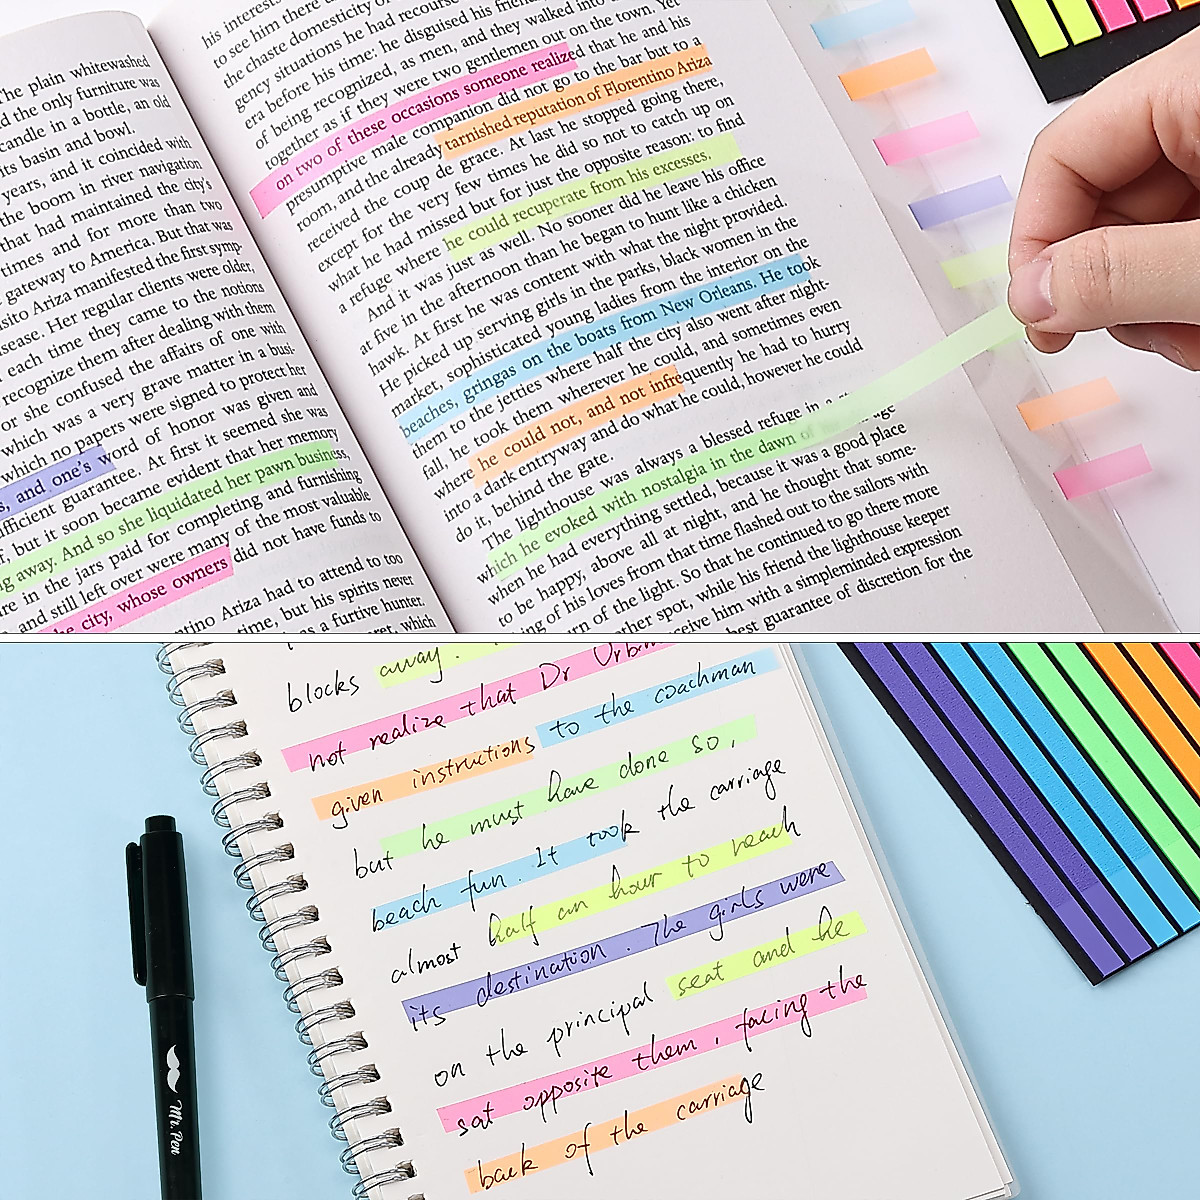 The plain whitewashed
d the only furniture was
candle in a bottle, an old
its basin and bowl.
years, and it coincided with
the boom in river navigation
that had maintained the city's
times and for more than two
gateway to America. But that was
sito Ariza manifested the first symp-
sease. Her regular clients were older,
each time they came to the notions
recognize them after dealing with them
or she confused the affairs of one with
which was a very grave matter in a busi-
which no papers were signed to protect her
s, and one's word of honor was given and
fficient guarantee. At first it seemed she was
f, but it soon became evident that her memory
ng away. And so she liquidated her pawn business,
re in the jars paid for completing and furnishing
and still left over were many of the most valuable
he city, whose owners did not have funds to
ntino Ariza had to attend to too
time, but his spirits never
s a furtive hunter.
ret, which
his interest.
to see him there
the chaste domesticity of
gency situations he had recourse
era before his time: he disguised his frien
of being recognized, as men, and they walked into
together as if they were two gentlemen out on the town. Yet
on two of these occasions someone realized that he and his
presumptive male companion did not go to the bar but to a
room, and the already tarnished reputation of Florentino Ariza
received the coup de grace. At last he stopped going there,
except for the very few times he did so not to catch up on
what he had missed but for just the opposite reason: to find
a refuge where he could recuperate from his excesses.
And it was just as well. No sooner did he leave his office
at five in the afternoon than he began to hunt like a chicken
hawk. At first he was content with what the night provided.
He picked up serving girls in the parks, black women in the
market, sophisticated young ladies from the interior on the
beaches, gringas on the boats from New Orleans. He took
them to the jetties where half the city also went after night-
fall, he took them wherever he could, and sometimes even
where he could not, and not infrequently he had to hurry
into a dark entryway and do what he could, however he could
do it, behind the gate.
The lighthouse was always a blessed refuge in a
which he evoked with nostalgia in the dawn of
when he had everything settled, because it was a good place
to be happy, above all at night, and he thought that some-
ing of his loves from that time flashed out to the sailors with
urn of the light. So that he continued to go there more
ther spot, while his friend the lighthouse keeper
ceive him with a simpleminded expression
best guarantee of discretion for the
blocks away.
not realize that Dr Urbin
given instructions to the coachman
but he must have done so,
beach fun. It took the carriage
almost half an hour to reach
its destination. The girls were
on the principal seat and he
sat opposite them, facing the
back of the carriage
Mr. Pen